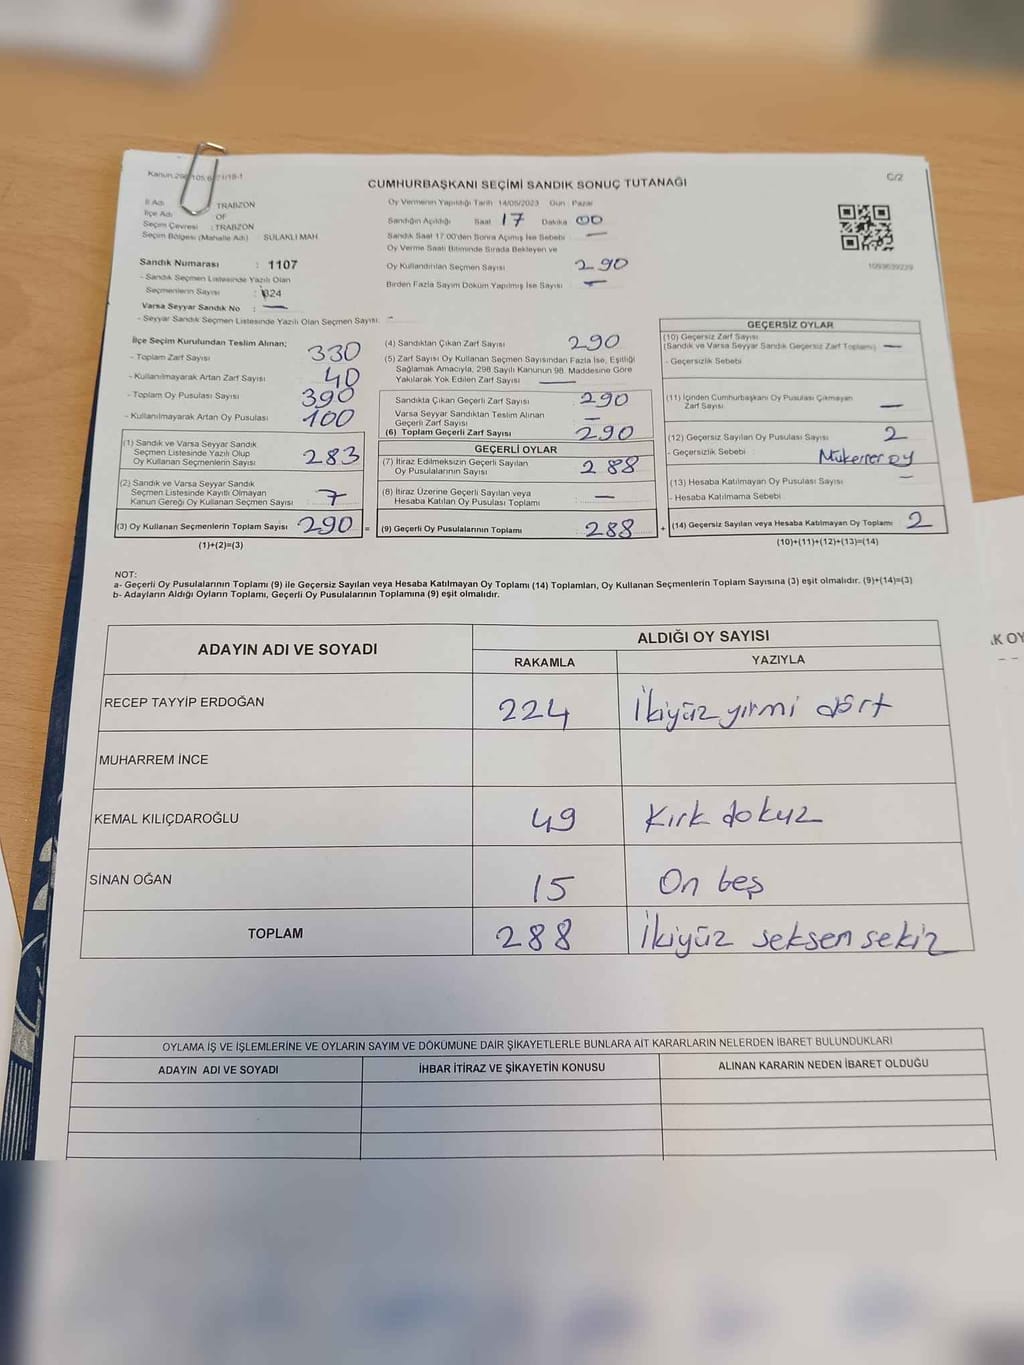 C/2
CUMHURBAŞKANI SEÇİMİ SANDIK SONUÇ TUTANAĞI
İl Adı : TRABZON
İlçe Adı : OF
Seçim Çevresi : TRABZON
Seçim Bölgesi (Mahalle Adı) : SULAKLI MAH.
Sandık Numarası : 1107
- Sandık Seçmen Listesinde Yazılı Olan
Seçmenlerin Sayısı : 324
Varsa Seyyar Sandık No : —
- Seyyar Sandık Seçmen Listesinde Yazılı Olan Seçmen Sayısı: -
Oy Vermenin Yapıldığı Tarih 14/05/2023 Gün : Pazar
Sandığın Açıldığı Saat 17 Dakika 00
Sandık Saat 17:00'den Sonra Açımış İse Sebebi : —
Oy Verme Saati Bitiminde Sırada Bekleyen ve
Oy Kullandırılan Seçmen Sayısı : 290
Birden Fazla Sayım Döküm Yapılmış İse Sayısı : —
1093639239
İlçe Seçim Kurulundan Teslim Alınan;
- Toplam Zarf Sayısı : 330
- Kullanılmayarak Artan Zarf Sayısı : 40
- Toplam Oy Pusulası Sayısı : 390
- Kullanılmayarak Artan Oy Pusulası : 100
(1) Sandık ve Varsa Seyyar Sandık
Seçmen Listesinde Yazılı Olup
Oy Kullanan Seçmenlerin Sayısı : 283
(2) Sandık ve Varsa Seyyar Sandık
Seçmen Listesinde Kayıtlı Olmayan
Kanun Gereği Oy Kullanan Seçmen Sayısı : 7
(3) Oy Kullanan Seçmenlerin Toplam Sayısı : 290 =
(1)+(2)=(3)
(4) Sandıktan Çıkan Zarf Sayısı : 290
(5) Zarf Sayısı Oy Kullanan Seçmen Sayısından Fazla İse, Eşitliği
Sağlamak Amacıyla, 298 Sayılı Kanunun 98. Maddesine Göre
Yakılarak Yok Edilen Zarf Sayısı : —
Sandıkta Çıkan Geçerli Zarf Sayısı : 290
Varsa Seyyar Sandıktan Teslim Alınan
Geçerli Zarf Sayısı : —
(6) Toplam Geçerli Zarf Sayısı : 290
GEÇERLİ OYLAR
(7) İtiraz Edilmeksizin Geçerli Sayılan
Oy Pusulalarının Sayısı : 288
(8) İtiraz Üzerine Geçerli Sayılan veya
Hesaba Katılan Oy Pusulası Toplamı : —
(9) Geçerli Oy Pusulalarının Toplamı : 288 +
GEÇERSİZ OYLAR
(10) Geçersiz Zarf Sayısı
(Sandık ve Varsa Seyyar Sandık Geçersiz Zarf Toplamı) : —
- Geçersizlik Sebebi :
(11) İçinden Cumhurbaşkanı Oy Pusulası Çıkmayan
Zarf Sayısı : —
(12) Geçersiz Sayılan Oy Pusulası Sayısı : 2
- Geçersizlik Sebebi : Mükerrer oy
(13) Hesaba Katılmayan Oy Pusulası Sayısı : —
- Hesaba Katılmama Sebebi :
(14) Geçersiz Sayılan veya Hesaba Katılmayan Oy Toplamı : 2
(10)+(11)+(12)+(13)=(14)
NOT:
a- Geçerli Oy Pusulalarının Toplamı (9) ile Geçersiz Sayılan veya Hesaba Katılmayan Oy Toplamı (14) Toplamları, Oy Kullanan Seçmenlerin Toplam Sayısına (3) eşit olmalıdır. (9)+(14)=(3)
b- Adayların Aldığı Oyların Toplamı, Geçerli Oy Pusulalarının Toplamına (9) eşit olmalıdır.
ADAYIN ADI VE SOYADI
ALDIĞI OY SAYISI
RAKAMLA YAZIYLA
RECEP TAYYİP ERDOĞAN 224 İkiyüz yirmi dört
MUHARREM İNCE
KEMAL KILIÇDAROĞLU 49 Kırk dokuz
SİNAN OĞAN 15 On beş
TOPLAM 288 İkiyüz seksen sekiz
OYLAMA İŞ VE İŞLEMLERİNE VE OYLARIN SAYIM VE DÖKÜMÜNE DAİR ŞİKAYETLERLE BUNLARA AİT KARARLARIN NELERDEN İBARET BULUNDUKLARI
ADAYIN ADI VE SOYADI İHBAR İTİRAZ VE ŞİKAYETİN KONUSU ALINAN KARARIN NEDEN İBARET OLDUĞU